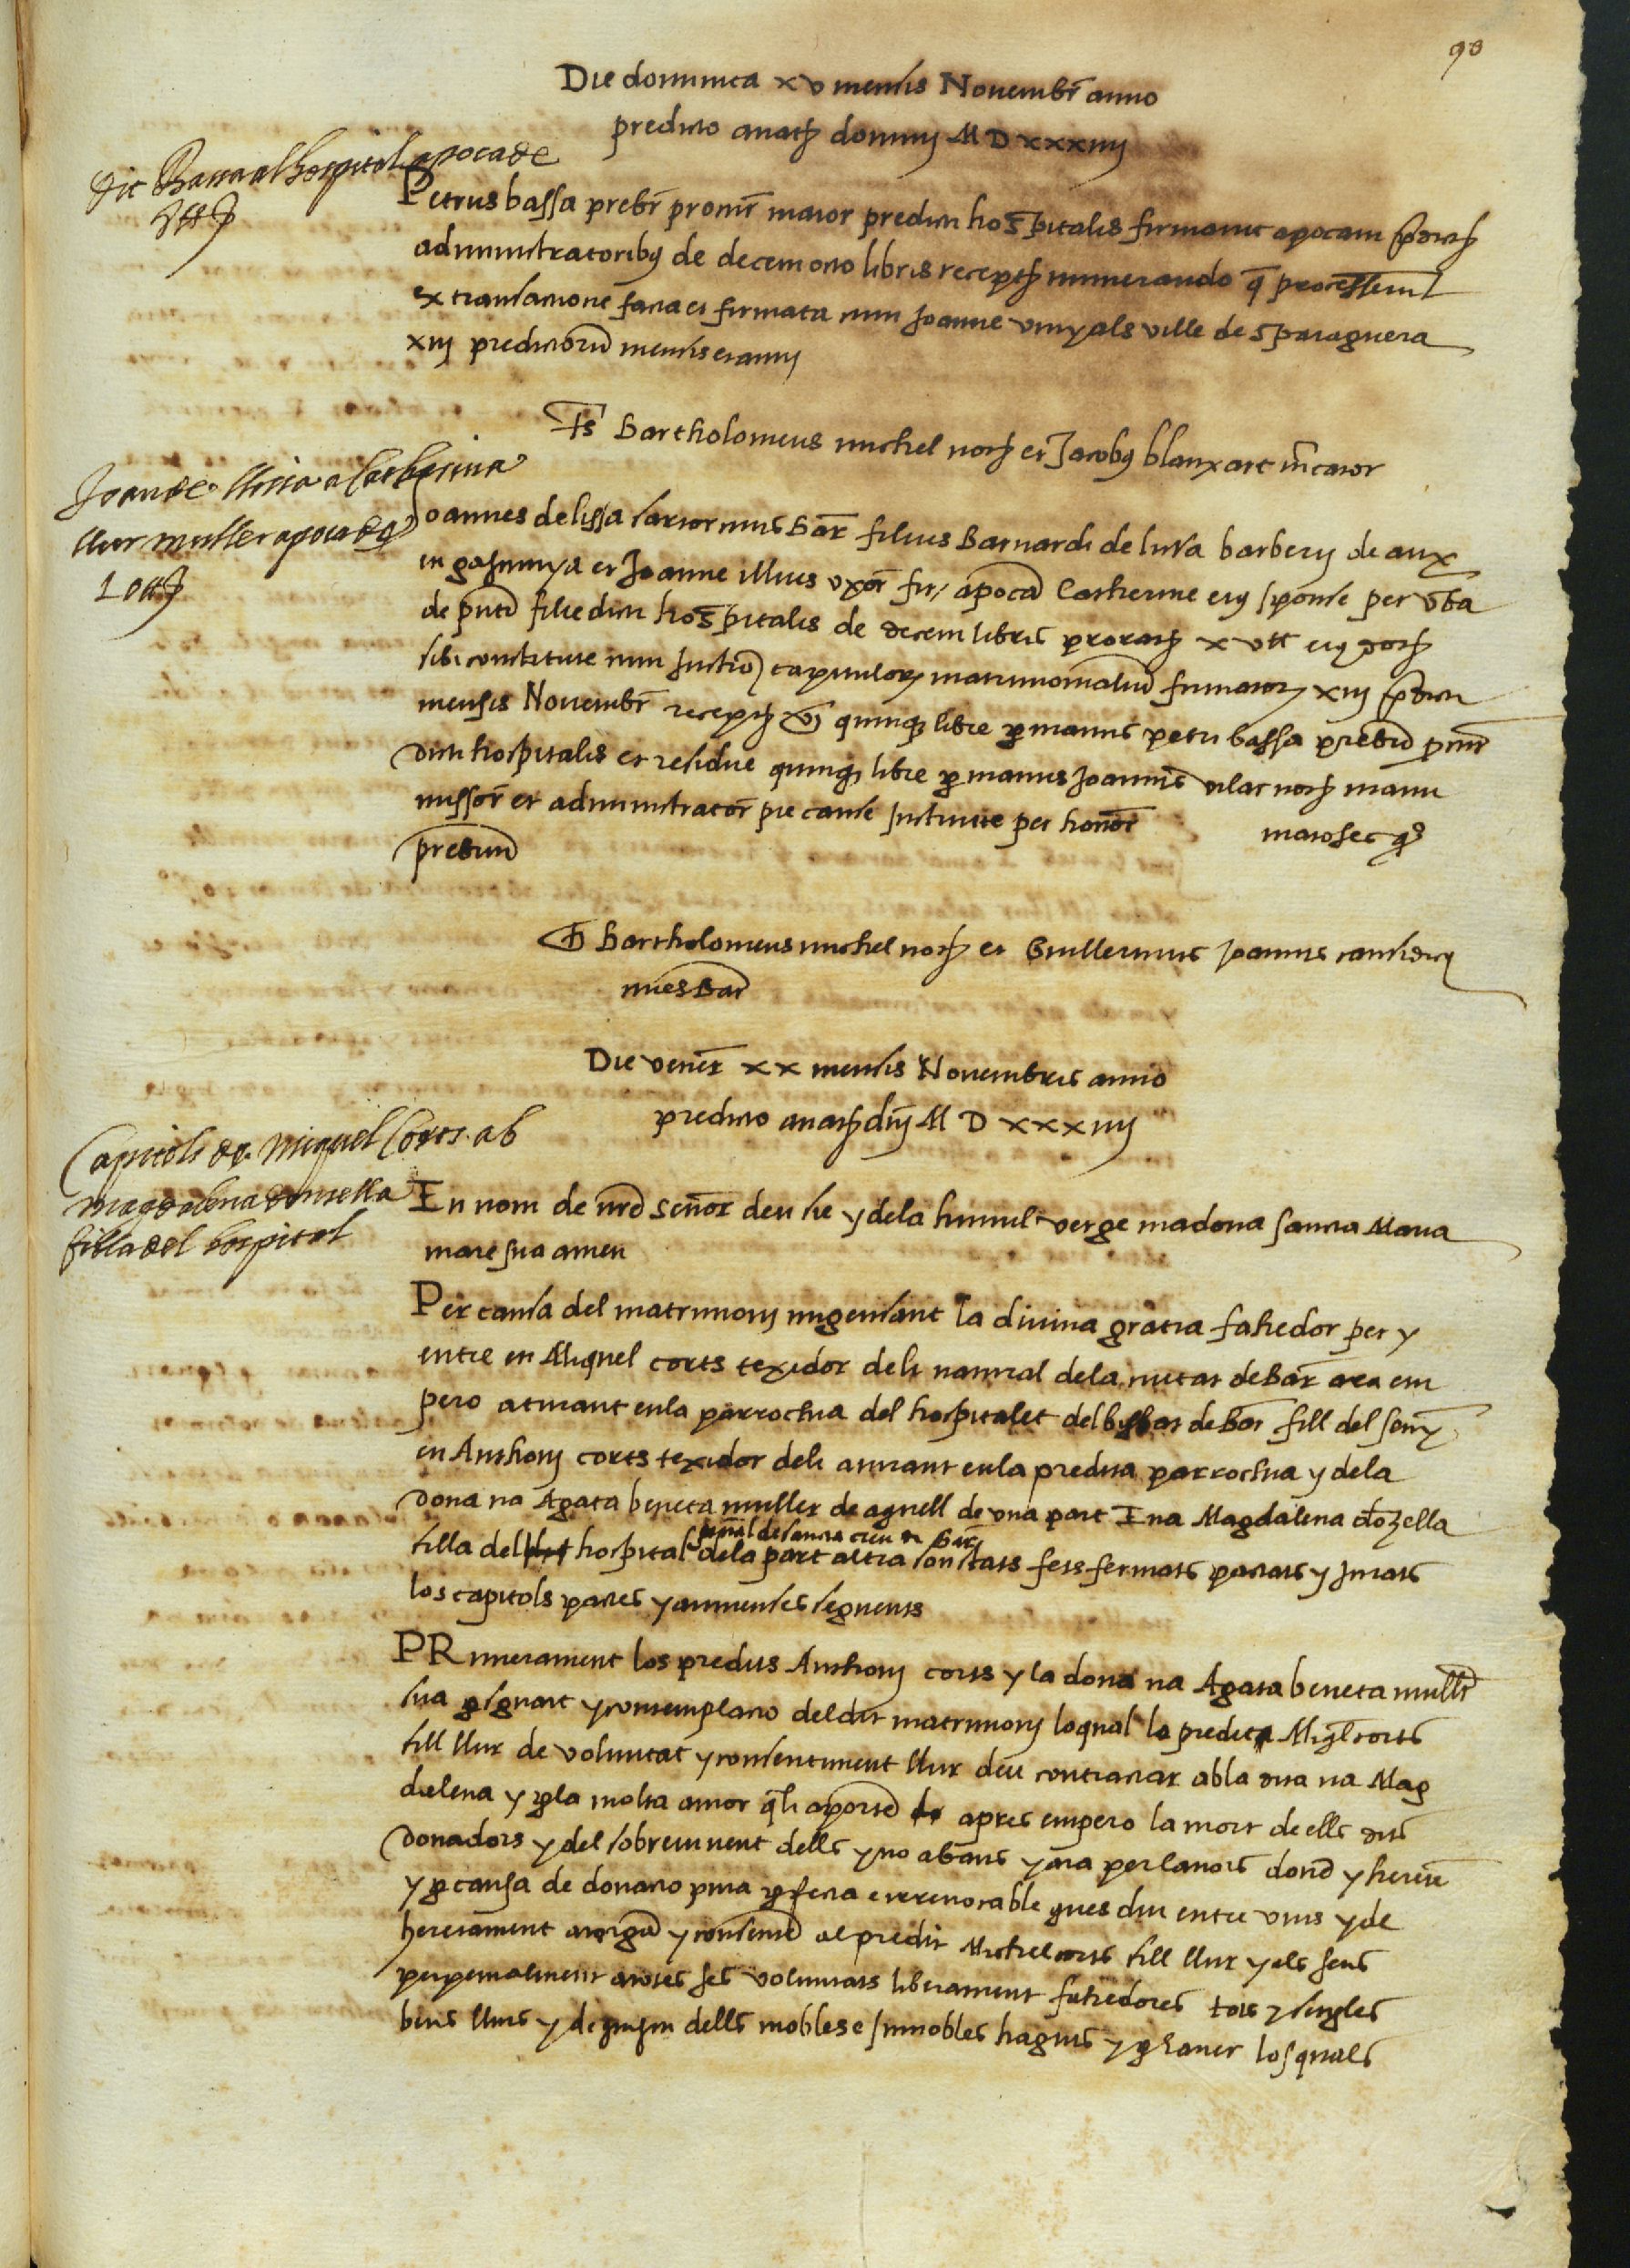 98
Die dominica xv mensis Novembr anno
predicto a nat dominj M D xxxiiij
dit Bassa al hospital apoca de
Petrus bassa prebr procur maior predicti hospitalis firmavit apocam
administratoribus de decem octo libris recept numerando q processerunt
ex transactione facta et firmata cum Joanne vinyals ville de sparaguera
xiij predictorum mensis et annj
Ts Bartholomeus michel not et Jacobus blanxart mcator
Joan de lissa a Catherina
llur muller apoca de
10 ll
Joannes de lissa sartor civis Bar filius Barnardi de lissa barberij de aux
in gascunya et Joanne illius uxor fir apoca Catherine eius sponse per vba
de pnti filie dicti hospitalis de decem libris prorat x v ll eius dot
sibi constitute cum instro capitulorum matrimonialium firmator xiij
mensis Novembr recept quinque libre p manus petri bassa prebri
dicti hospitalis et residue quinque libre p manus Joannis vilar not manu
missor et administrator pie cause institute per honor
prebiterum
Bartholomeus michel not et Guillermus Joannis causidicus
cives Bar
Die vener xx mensis Novembris anno
predicto a nat dnj M D xxxiiij
Capitols de Miquel Corts ab
magdalena donsella
filla del hospital
En nom de nre señor deu sie y dela humil verge madona sancta Maria
mare sua amen
Per causa del matrimonj migensant la divina gratia fahedor per y
entre en Miquel corts texidor de li natural dela ciutat de Bar ara em
pero aturant en la parrochia del hospitalet del bisbat de Bar fill del seny
en Anthonj corts texidor de li aturant en la predita parrochia y dela
dona na Agata beneta muller de aquell de una part E na Magdalena dozella
filla del hospital gñal de sancta creu de Bar dela part altra son stats fets fermats pactats y jurats
los capitols pactes y avinenses seguents
PRimerament los predits Anthonj corts y la dona na Agata beneta mullr
sua p sguart y contemplacio del dit matrimonj lo qual lo predit Miql corts
fill llur de voluntat y consentiment llur deu contractar ab la dita na Mag
dalena y p la molta amor q li aporte apres empero la mort de ells dits
donadors y del sobrevivent dells y no abans y ara per lavors done y herete
y p causa de donacio pura pfecta e irrevocable ques diu entre vius y de
heretament atorgue y consente al predit Michel corts fill llur y als seus
perpetualment a totes ses voluntats liberament fahedores tots y sengles
bens llurs y de quiscun dells mobles e immobles haguts y p haver los quals